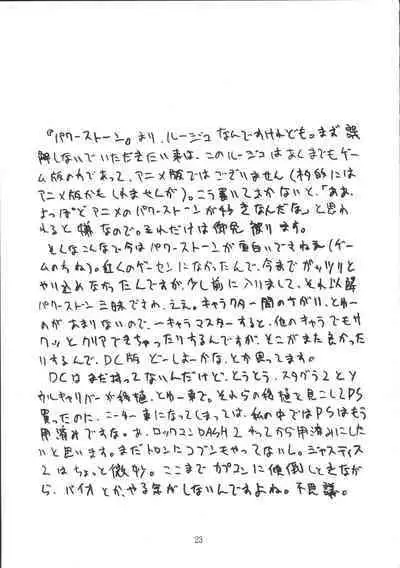 『パワーストーン』より、ルージュなんですけれども。まず誤
解しないでいただきたい事は、このルージュはあくまでもゲー
ム版のであって、アニメ版ではございません(利的には
アニメ版かもしれませんが)。こう書いておかないと、「ああ、
よっぽどアニメのパワーストーンが好きなんだな」と思わ
れると嫌なので。それだけは御免被ります。
そんなこんなで今はパワーストーンが面白いですねぇ(ゲー
ムのね)。近くのゲーセンになかったんで、今までガッツリと
やり込めなかったんですが、少し前に入りまして、それ以降
パワーストーン三昧ですわ、ええ。キャラクター間のさがい、とゆーも
のがあまりないので、一キャラマスターすると、他のキャラでもサ
クッとクリアできちゃったりするんですが、そこがまた良かった
りするんで、DC版どーしよーかな、とか思ってます。
DCはまだ持ってないんだけど、とうとう、スタグラ2とソ
ウルキャリバーが移植とゆー事で。それらの移植を見こしてPS
買ったのに、こーゆー事になってしまっては、私の中ではPSはもう
用済みですな。あ、ロックマンDASH2やってから用済みにした
いと思います。まだトロンにコブンもやってないし。ジャスティス
2はちょっと微妙。ここまでカプコンに傾倒しときなが
ら、バイオとか、やる気がしないんですよね。不思議。
23